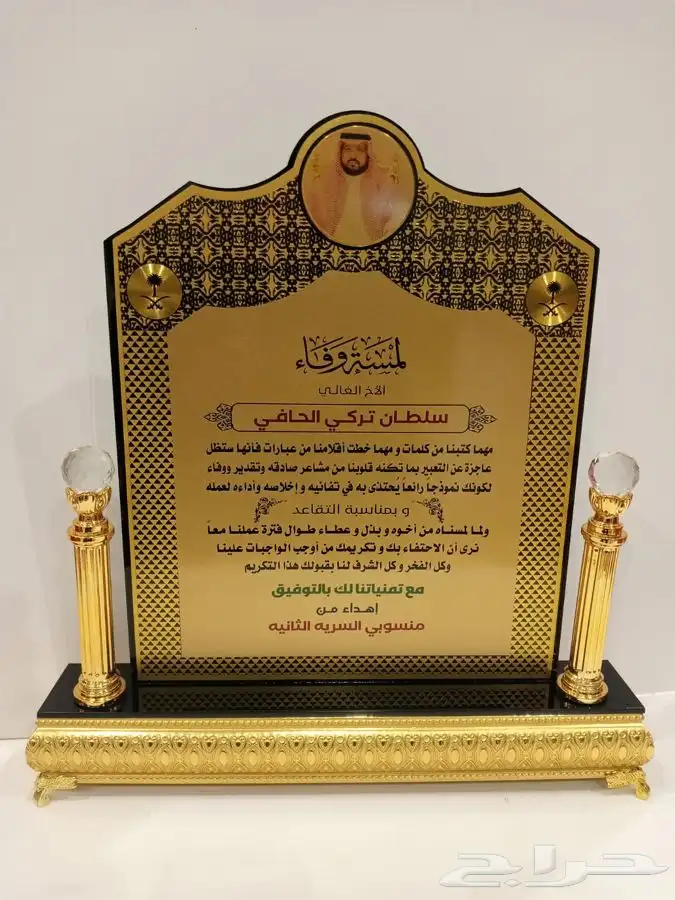 لمسة وفاء
الأخ الغالي
سلطان تركي الحافي
مهما كتبنا من كلمات و مهما خطت أقلامنا من عبارات فأنها ستظل
عاجزة عن التعبير بما تكنه قلوبنا من مشاعر صادقه وتقدير ووفاء
لكونك نموذجاً رائعاً يُحتذى به في تفانيه و إخلاصه وأداءه لعمله
و بمناسبة التقاعد
ولما لمسناه من أخوه و بذل و عطاء طوال فترة عملنا معاً
نرى أن الاحتفاء بك و تكريمك من أوجب الواجبات علينا
وكل الفخر و كل الشرف لنا بقبولك هذا التكريم
مع تمنياتنا لك بالتوفيق
إهداء من
منسوبي السريه الثانيه
حراج